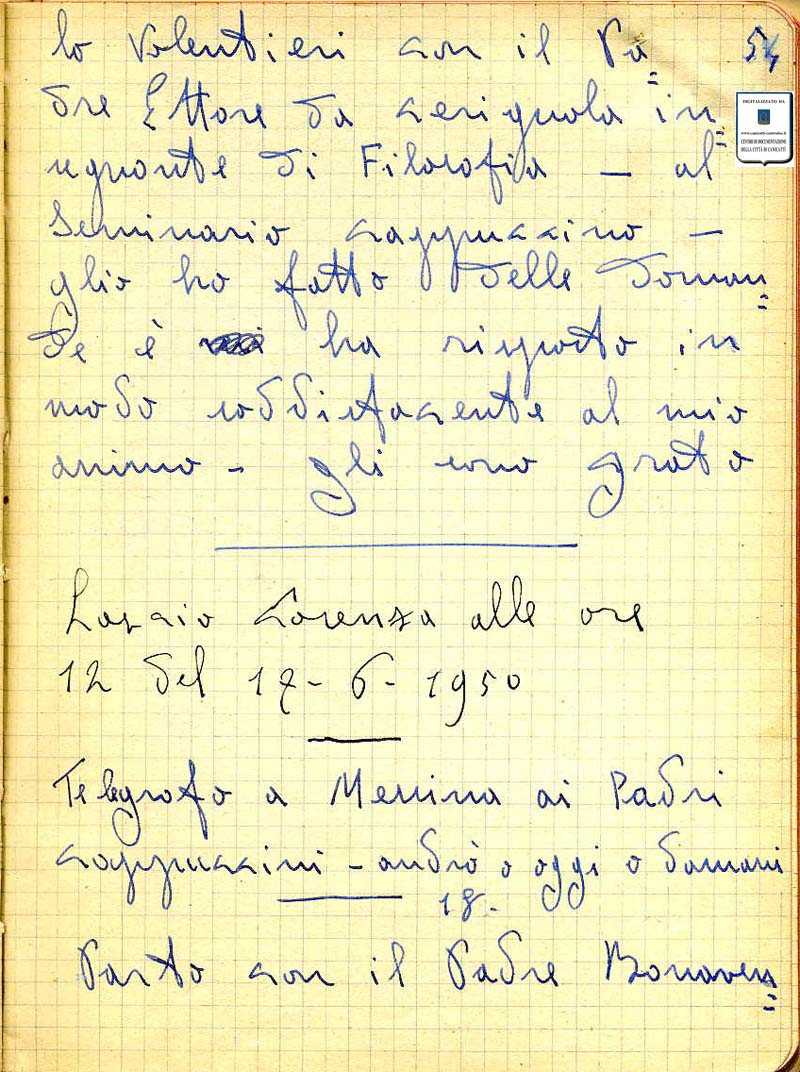 lo volentieri con il Pa= 54
dre Ettore da Cerignola in=
segnante di Filosofia - al=
Seminario Cappuccino -
glio ho fatto delle doman=
de è ha risposto in
modo soddisfacente al mio
animo - gli sono grato
Lascio Cosenza alle ore
12 del 17-6-1950
Telegrafo a Messina ai Padri
Cappuccini - andrò o oggi o domani
18.
Parto con il Padre Bonaven=
DIGITALIZZATO DA
CENTRO DI DOCUMENTAZIONE
DELLA CITTÀ DI CANICATTÌ